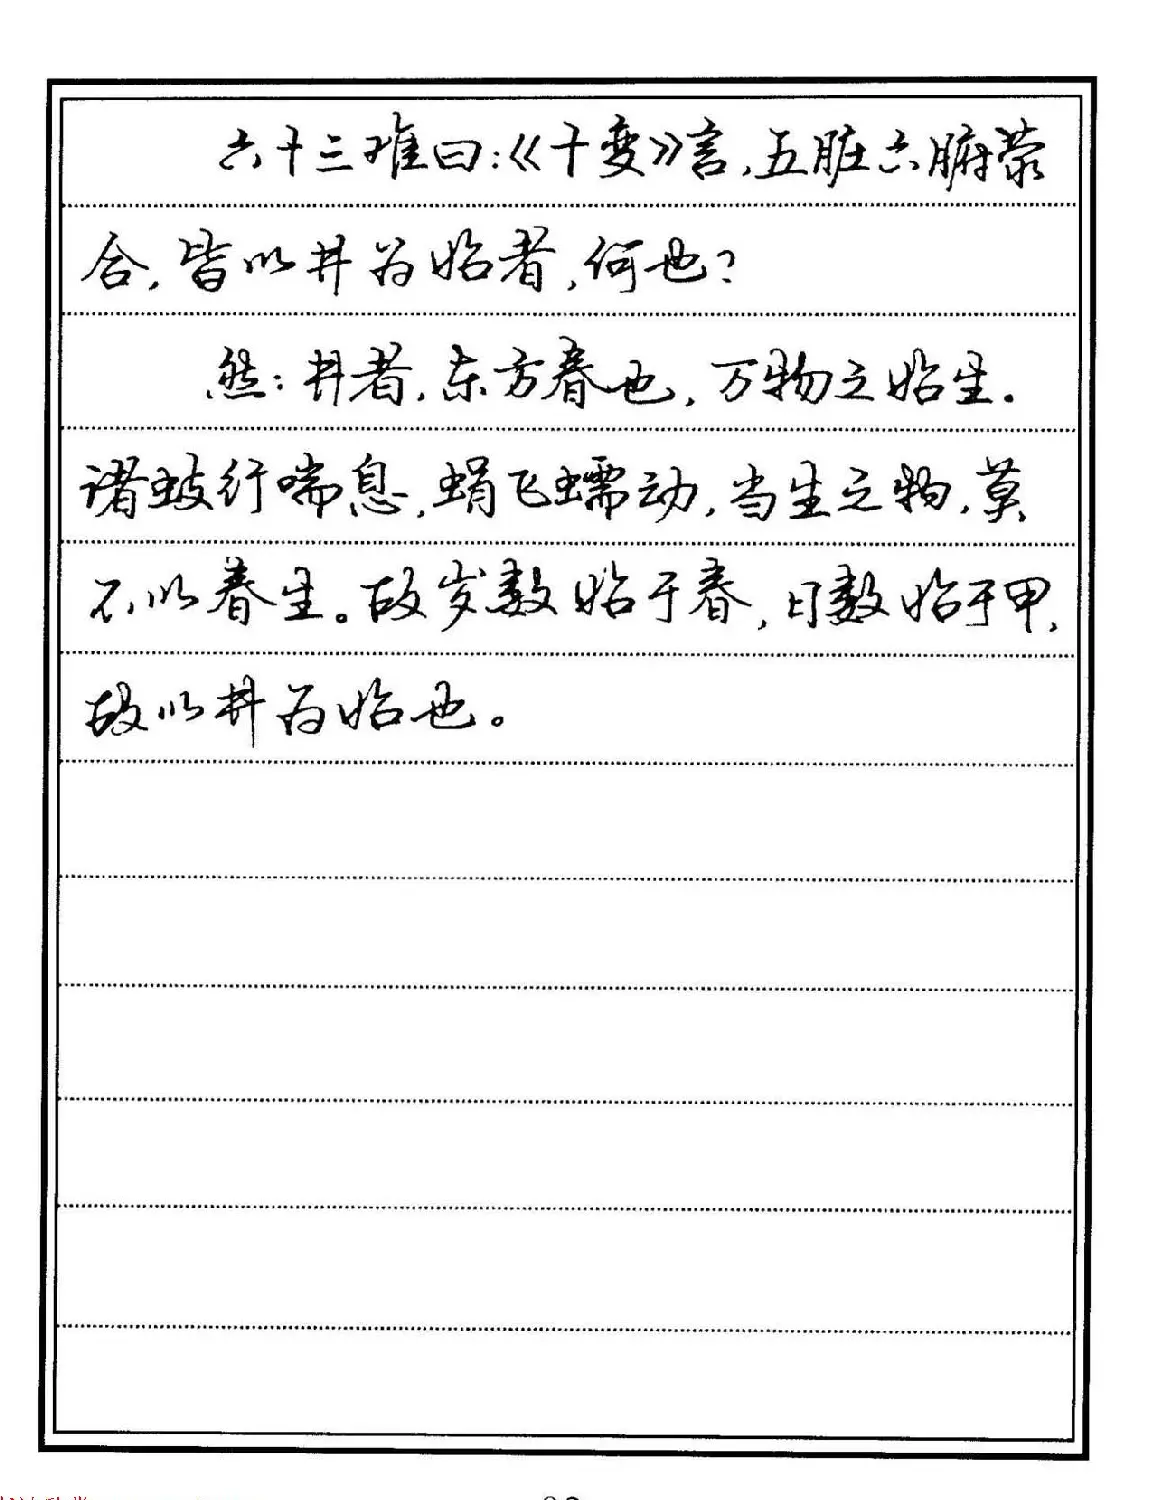 六十三难曰:《十变》言,五脏六腑荥
合,皆以井为始者,何也?
然:井者,东方春也,万物之始生.
诸蚑行喘息,蜎飞蠕动,当生之物,莫
不以春生。故岁数始于春,日数始于甲,
故以井为始也。